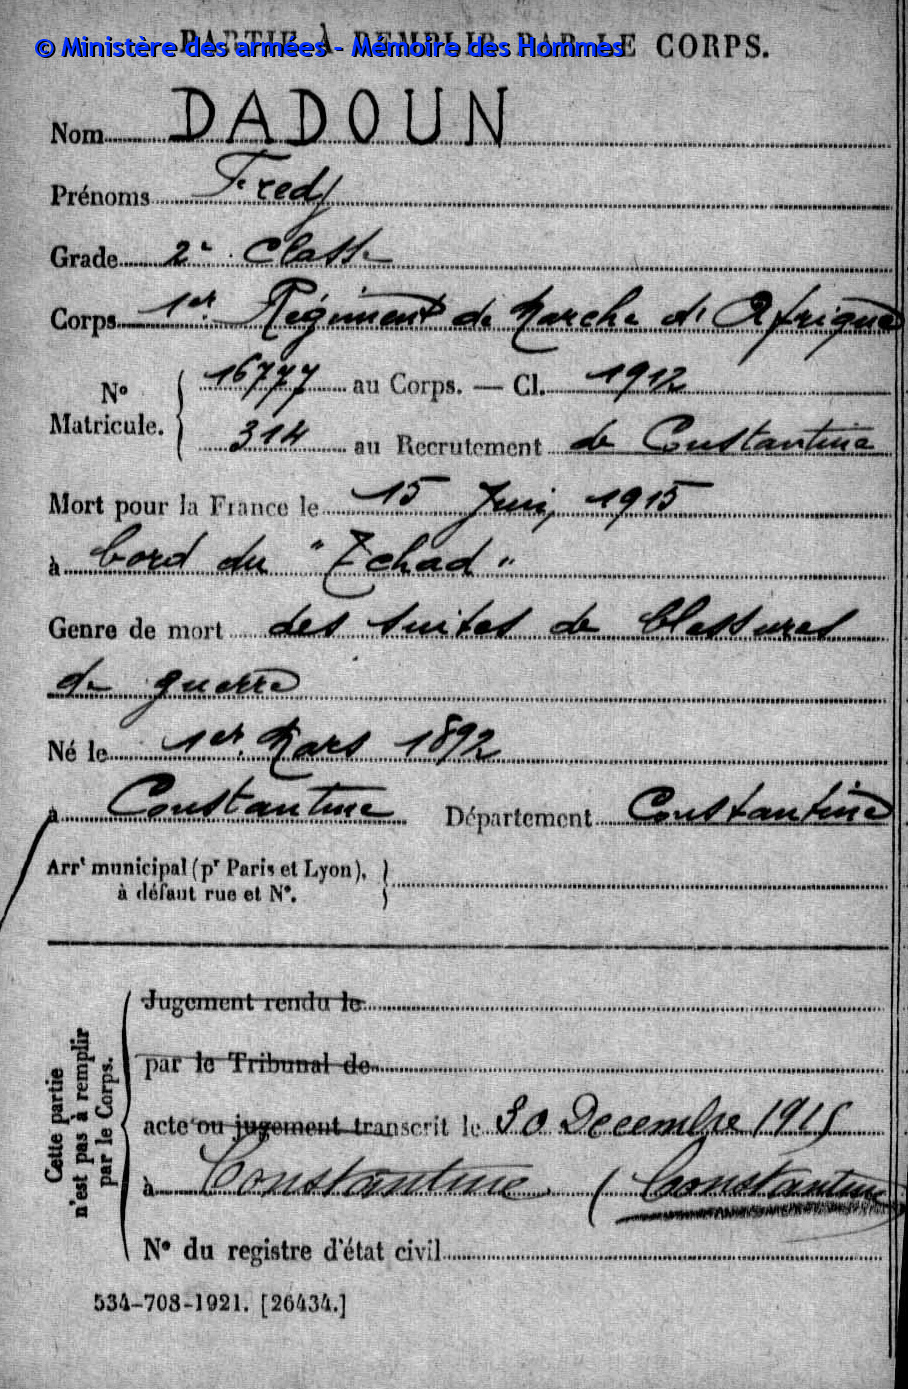 PARTIE À REMPLIR PAR LE CORPS.
© Ministère des armées - Mémoire des Hommes
Nom DADOUN
Prénoms Fredj
Grade 2e Classe
Corps 1er Régiment de Marche d'Afrique
No Matricule. 16777 au Corps. — Cl. 1912
314 au Recrutement de Constantine
Mort pour la France le 15 Juin 1915
à bord du "Tchad"
Genre de mort des suites de blessures
de guerre
Né le 1er Mars 1892
à Constantine Département Constantine
Arrt municipal (pr Paris et Lyon),
à défaut rue et No.
Cette partie
n'est pas à remplir
par le Corps.
Jugement rendu le
par le Tribunal de
acte ou jugement transcrit le 30 Decembre 1915
à Constantine (Constantine
No du registre d'état civil
534-708-1921. [26434.]